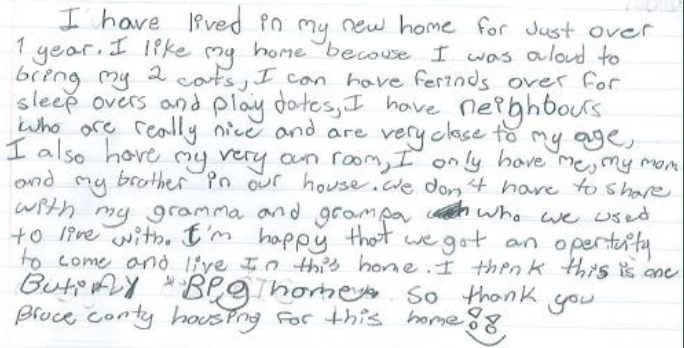 I have lived in my new home for Just over
1 year. I like my home because I was aloud to
bring my 2 cats, I can have ferinds over for
sleep overs and play dates, I have neighbours
who are really nice and are very close to my age,
I also have my very own room, I only have me, my mom
and my brother in our house. we don't have to share
with my gramma and grampa who we used
to live with. I'm happy that we got an opertuity
to come and live In this home. I think this is one
Butifly Big home so thank you
Bruce conty housing for this home!!